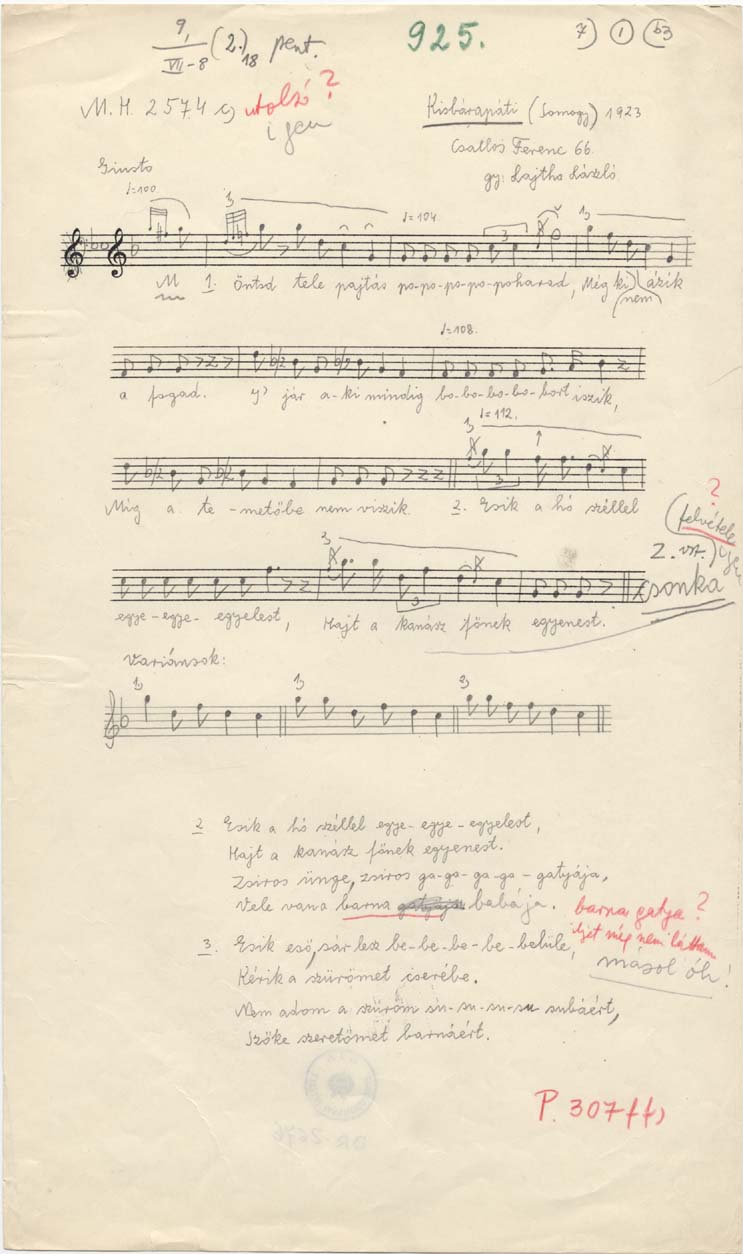 9,
VII-8 (2.)18 pent.
925.
7) 1 b3
M. H. 2574 c) utolsó?
igen
Kisbárapáti (Somogy) 1923
Csatlós Ferenc 66.
gy: Lajtha László
Giusto
♩=100
1)
♩=104.
3
1)
M 1. Öntsd tele pajtás po-po-po-po-poharad, Még ki ázik
(nem)
♩=108.
a fogad. S' jár a-ki mindig bo-bo-bo-bo-bort iszik,
♩=112.
1)
3
Míg a te-metőbe nem viszik. 2. Esik a hó széllel
?
(felvétele
2. vsz.) igen
csonka
3)
3
egye-egye-egyelest, Hajt a kanász főnek egyenest.
Variánsok:
1) 1) 2)
2 Esik a hó széllel egye-egye-egyelest,
Hajt a kanász főnek egyenest.
Zsiros ünge, zsiros ga-ga-ga-ga-gatyája,
Vele vana barna gatyája babája.
barna gatya?
ilyet még nem láttam
másoló!
3. Esik eső, sár lesz be-be-be-be-belüle,
Kérik a szűrömet cserébe.
Nem adom a szűröm su-su-su-su subáért,
Szőke szeretőmet barnáért.
BR-2676
P. 307 ff)